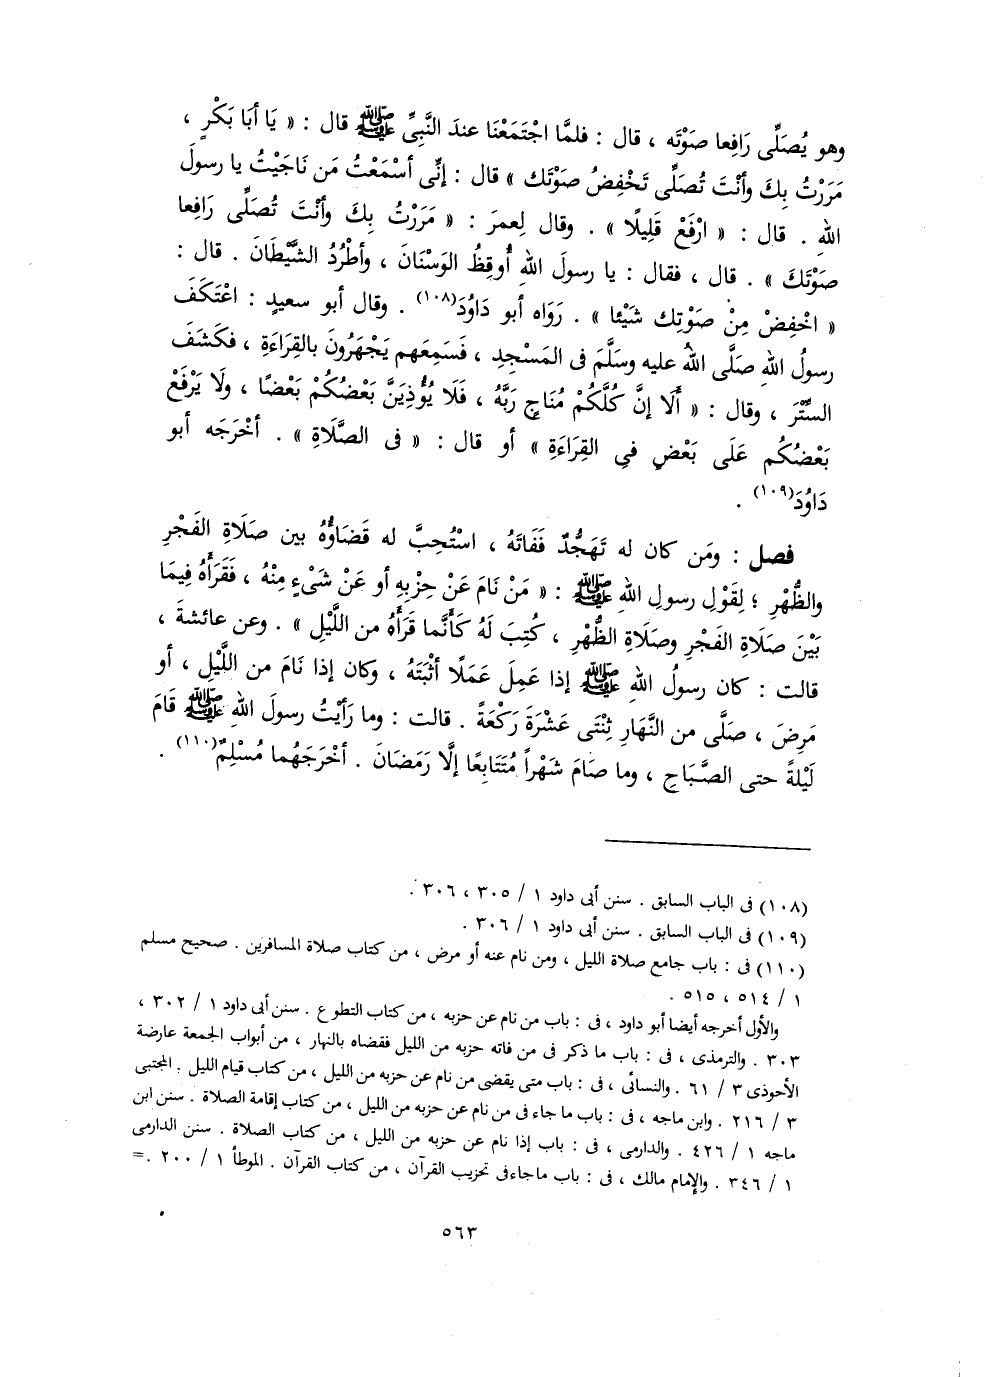 وهو يُصَلِّى رَافِعا صَوْتَه ، قال : فلمَّا اجْتَمَعْنَا عندَ النَّبِىِّ ﷺ قال : « يَا أبَا بَكْرٍ ،
مَرَرْتُ بِكَ وأنْتَ تُصَلِّى تَخْفِضُ صَوْتَك » قال : إنِّى أسْمَعْتُ مَن نَاجَيْتُ يا رسولَ
اللهِ . قال : « ارْفَعْ قَلِيلًا » . وقال لِعمرَ : « مَرَرْتُ بِكَ وأنْتَ تُصَلِّى رَافِعا
صَوْتَكَ » . قال ، فقال : يا رسولَ اللهِ أُوقِظُ الوَسْنَانَ ، وأطْرُدُ الشَّيْطَانَ . قال :
« اخْفِضْ مِنْ صَوْتِك شَيْئا » . رَوَاه أبو دَاوُدَ(١٠٨) . وقال أبو سعيدٍ : اعْتَكَفَ
رسولُ اللهِ صَلَّى اللهُ عليه وسَلَّمَ فى المَسْجِدِ ، فَسَمِعَهم يَجْهَرُونَ بالقِرَاءَةِ ، فكَشَفَ
السِّتْرَ ، وقال : « أَلَا إنَّ كُلَّكُمْ مُنَاجٍ رَبَّهُ ، فَلَا يُؤْذِيَنَّ بَعْضُكُمْ بَعْضًا ، ولَا يَرْفَعْ
بَعْضُكُم عَلَى بَعْضٍ فىِ القِرَاءَةِ » أو قال : « فى الصَّلَاةِ » . أخْرَجَه أبو
دَاوُدَ(١٠٩) .
فصل : ومَن كان له تَهَجُّدٌ فَفَاتَهُ ، اسْتُحِبَّ له قَضَاؤُهُ بين صَلَاةِ الفَجْرِ
والظُّهْرِ ؛ لِقَوْلِ رسولِ اللهِ ﷺ : « مَنْ نَامَ عَنْ حِزْبِهِ أو عَنْ شَىْءٍ مِنْهُ ، فَقَرَأَهُ فِيمَا
بَيْنَ صَلَاةِ الفَجْرِ وصَلَاةِ الظُّهْرِ ، كُتِبَ لَهُ كَأَنَّما قَرَأَهُ من اللَّيْلِ » . وعن عائشةَ ،
قالت : كان رسولُ اللهِ ﷺ إذا عَمِلَ عَمَلًا أثْبَتَهُ ، وكان إذا نَامَ من اللَّيْلِ ، أو
مَرِضَ ، صَلَّى من النَّهَارِ ثِنْتَى عَشْرَةَ رَكْعَةً . قالت : وما رَأيْتُ رسولَ اللهِ ﷺ قَامَ
لَيْلةً حتى الصَّبَاحِ ، وما صَامَ شَهْراً مُتَتَابِعًا إلَّا رَمَضَانَ . أخْرَجَهُما مُسْلِمٌ(١١٠) .
(١٠٨) فى الباب السابق . سنن أبى داود ١ / ٣٠٥ ، ٣٠٦ .
(١٠٩) فى الباب السابق . سنن أبى داود ١ / ٣٠٦ .
(١١٠) فى : باب جامع صلاة الليل ، ومن نام عنه أو مرض ، من كتاب صلاة المسافرين . صحيح مسلم
١ / ٥١٤ ، ٥١٥ .
والأول أخرجه أيضا أبو داود ، فى : باب من نام عن حزبه ، من كتاب التطوع . سنن أبى داود ١ / ٣٠٢ ،
٣٠٣ . والترمذى ، فى : باب ما ذكر فى من فاته حزبه من الليل فقضاه بالنهار ، من أبواب الجمعة عارضة
الأحوذى ٣ / ٦١ . والنسائى ، فى : باب متى يقضى من نام عن حزبه من الليل ، من كتاب قيام الليل . المجتبى
٣ / ٢١٦ . وابن ماجه ، فى : باب ما جاء فى من نام عن حزبه من الليل ، من كتاب إقامة الصلاة . سنن ابن
ماجه ١ / ٤٢٦ . والدارمى ، فى : باب إذا نام عن حزبه من الليل ، من كتاب الصلاة . سنن الدارمى
١ / ٣٤٦ . والإمام مالك ، فى : باب ما جاء فى تحزيب القرآن ، من كتاب القرآن . الموطأ ١ / ٢٠٠ .=
٥٦٣